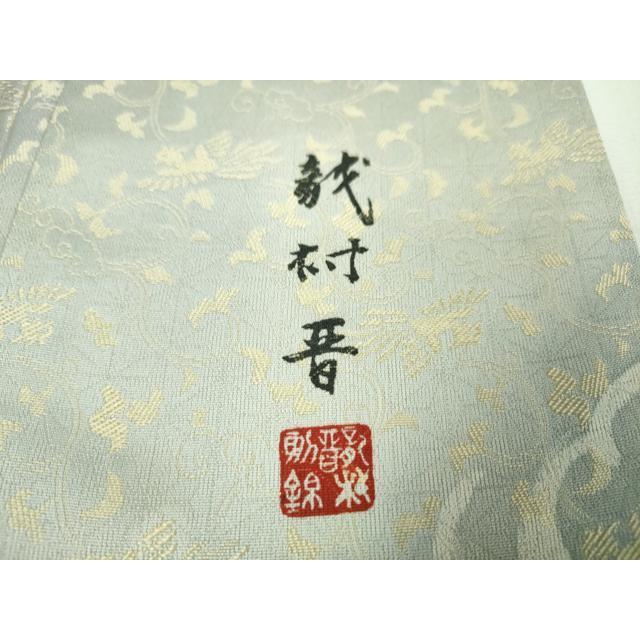 龍村晋
龍村
晋
錦